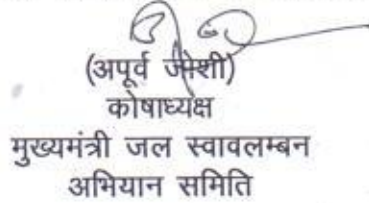 (अपूर्व जोशी)
कोषाध्यक्ष
मुख्यमंत्री जल स्वावलम्बन
अभियान समिति